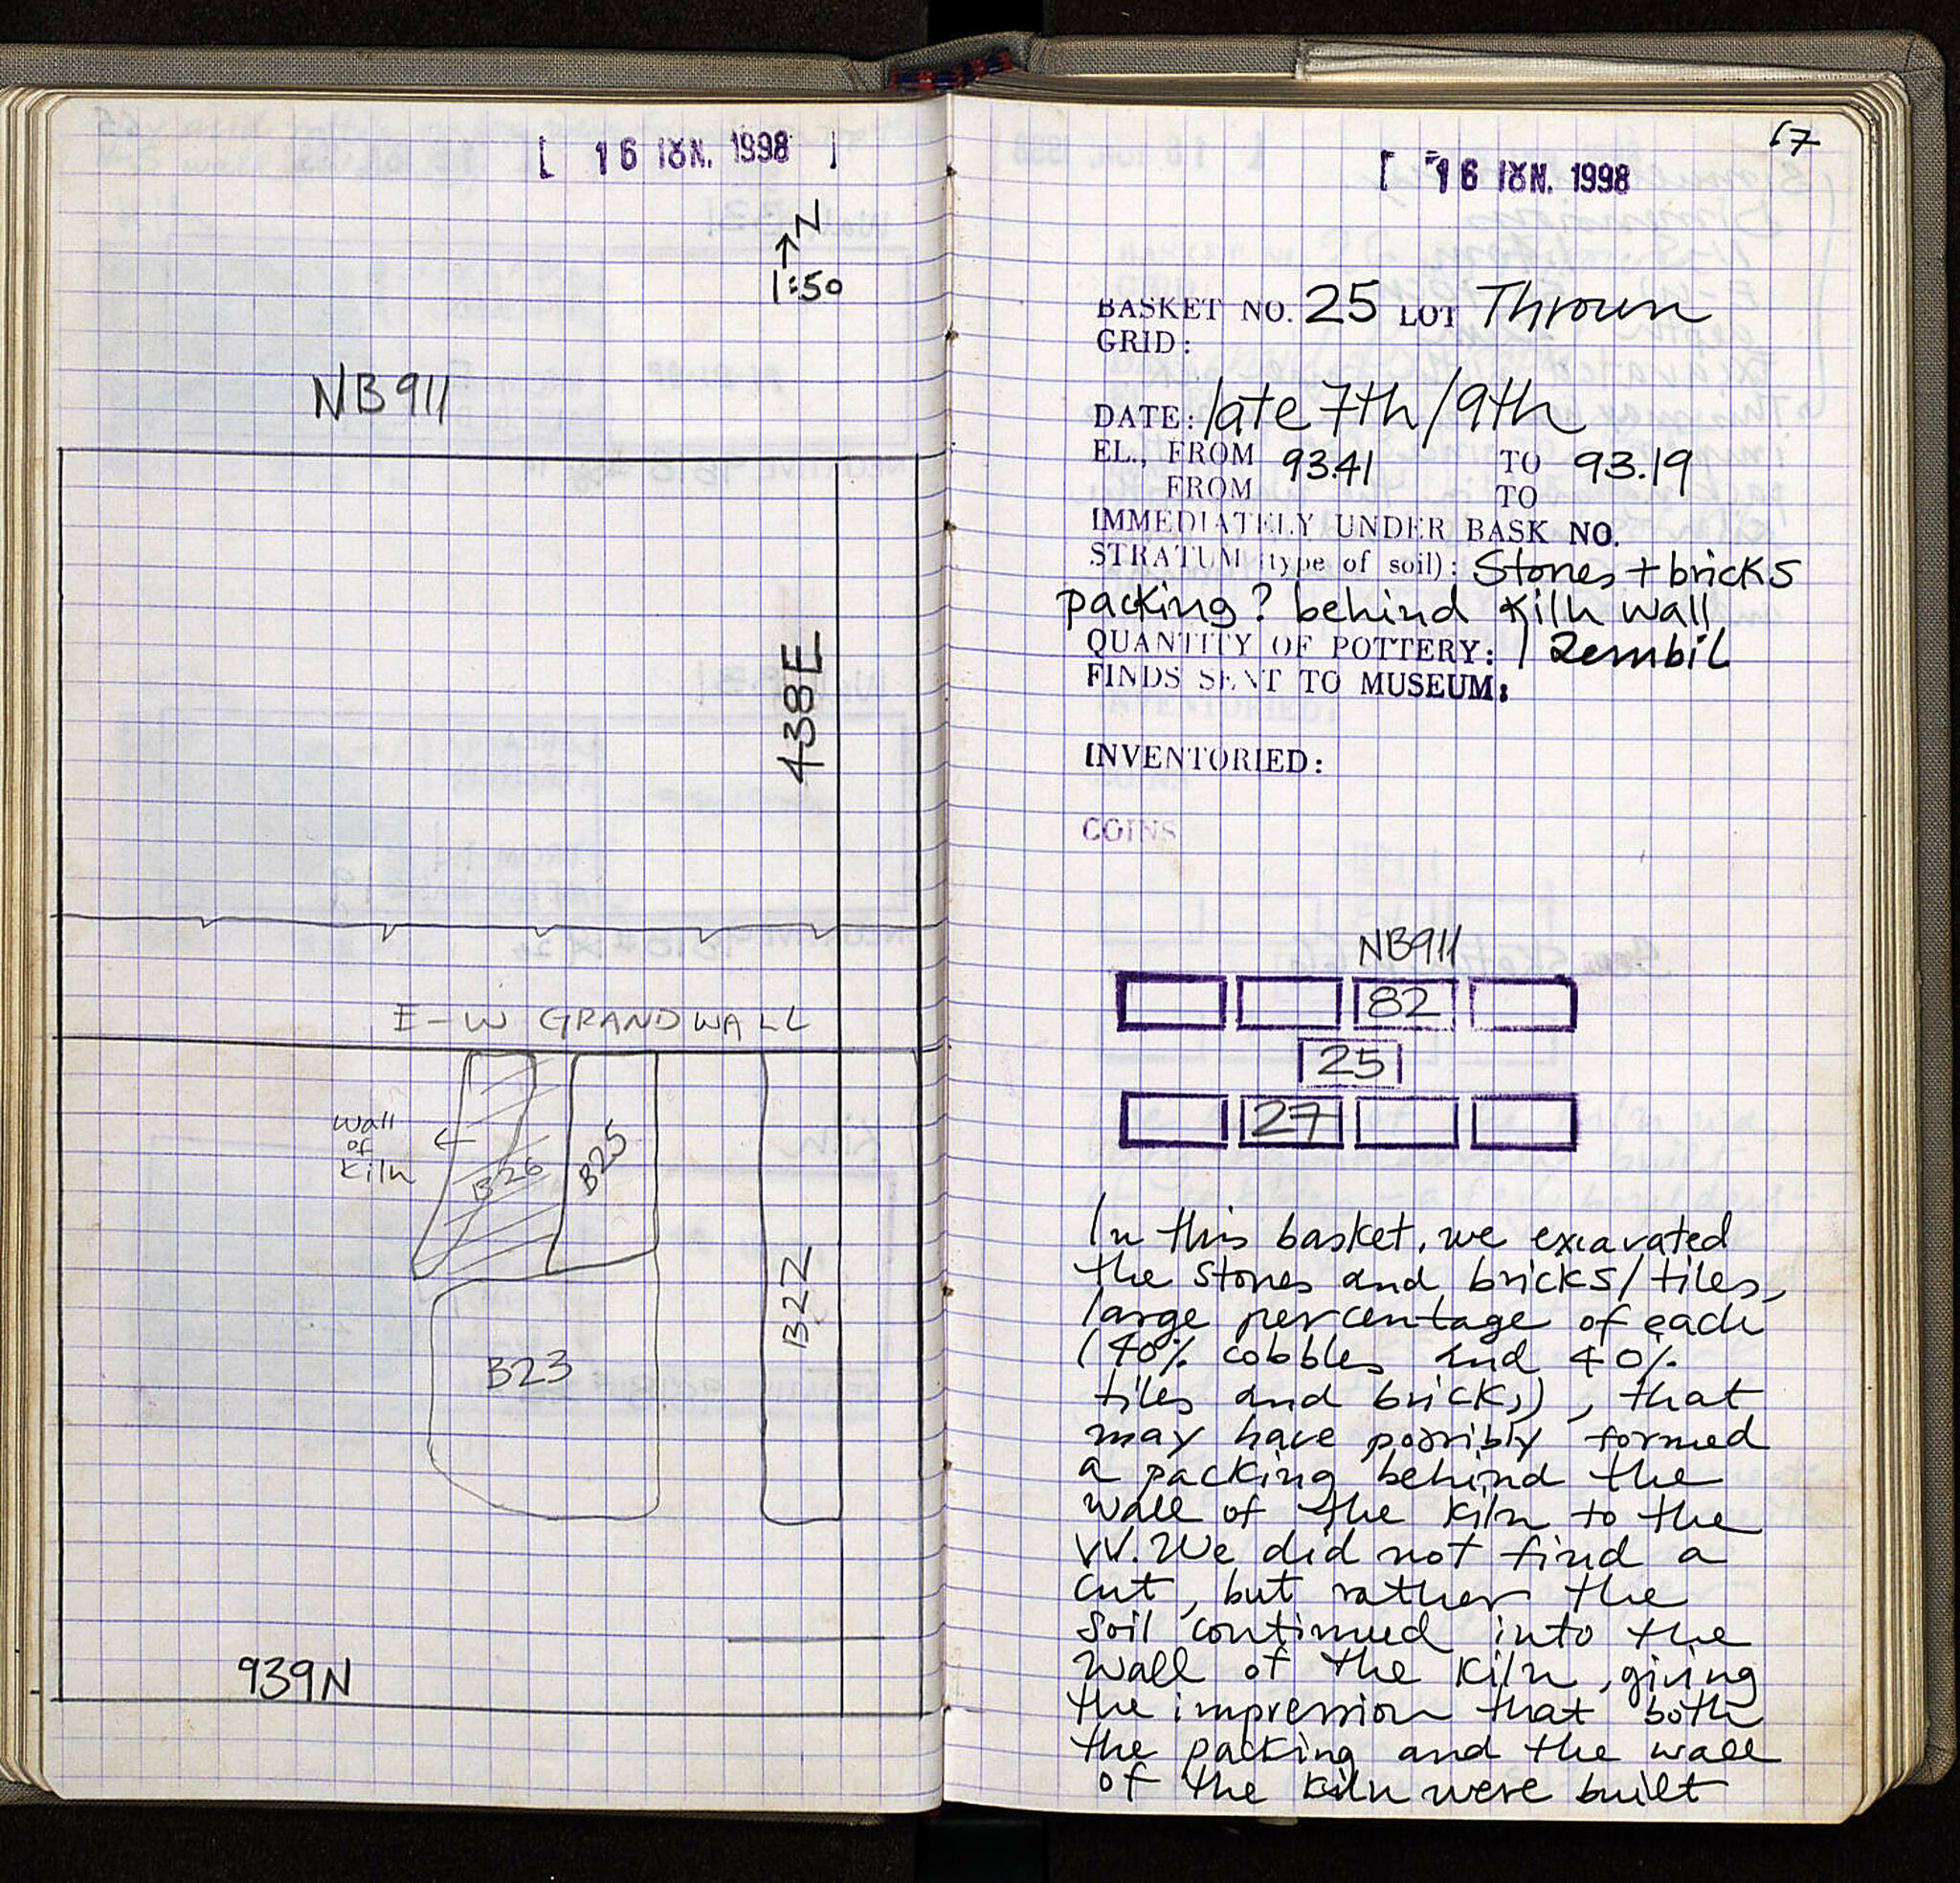 [ 16 ΙΟΥΝ. 1998 ]
N
1:50
NB911
438E
E-W GRAND WALL
wall
of
kiln
B26
B25
B22
B23
939N
67
[ 16 ΙΟΥΝ. 1998
BASKET NO. 25 LOT Thrown
GRID:
DATE: late 7th/9th
EL., FROM 93.41 TO 93.19
FROM TO
IMMEDIATELY UNDER BASK NO.
STRATUM (type of soil): Stones + bricks
packing? behind kiln wall
QUANTITY OF POTTERY: 1 Zembil
FINDS SENT TO MUSEUM:
INVENTORIED:
COINS
NB911
82
25
27
In this basket, we excavated
the stones and bricks/tiles,
large percentage of each
(40% cobbles and 40%
tiles and bricks), that
may have possibly formed
a packing behind the
wall of the kiln to the
W. We did not find a
cut, but rather the
soil continued into the
wall of the kiln, giving
the impression that both
the packing and the wall
of the kiln were built